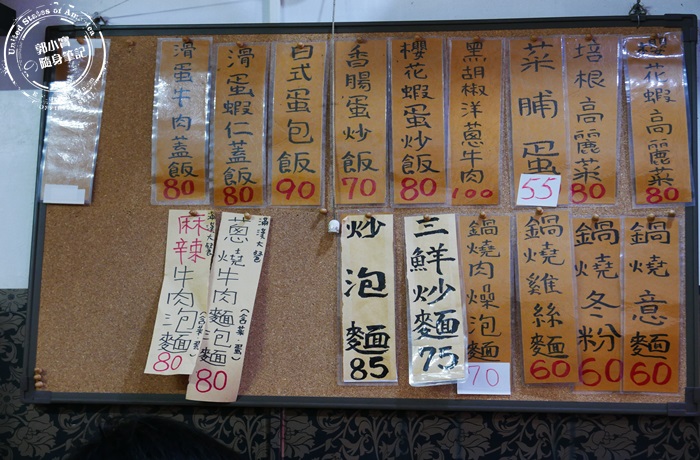 United States of
郭小寶
の
隨身筆記
櫻花蝦高麗菜
80
培根高麗菜
80
菜脯蛋
55
黑胡椒洋蔥牛肉
100
櫻花蝦蛋炒飯
80
香腸蛋炒飯
70
日式蛋包飯
90
滑蛋蝦仁蓋飯
80
滑蛋牛肉蓋飯
80
鍋燒意麵
60
鍋燒冬粉
60
鍋燒雞絲麵
60
鍋燒肉燥泡麵
70
三鮮炒麵
75
炒泡麵
85
滿漢大餐
蔥燒牛肉麵包麵
(含菜 蛋)
80
滿漢大餐
麻辣牛肉包麵
(含菜 蛋)
80